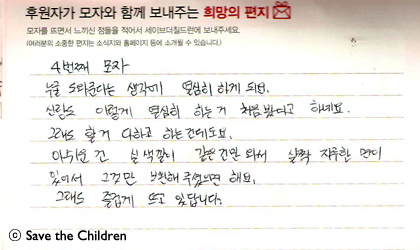 후원자가 모자와 함께 보내주는 희망의 편지
모자를 뜨면서 느끼신 점들을 적어서 세이브더칠드런에 보내주세요.
(여러분의 소중한 편지는 소식지와 홈페이지 등에 소개될 수 있습니다.)
4번째 모자
누굴 도와준다는 생각에 열심히 하게 되요.
신랑도 이렇게 열심히 하는거 처음 봤다고 하네요.
그래도 할거 다하고 하는건데도요.
아쉬운 건 실 색깔이 같은것만 와서 살짝 지루한 면이
있어서 그것만 보완해 주셨으면 해요.
그래도 즐겁게 뜨고 있답니다.
ⓒ Save the Children